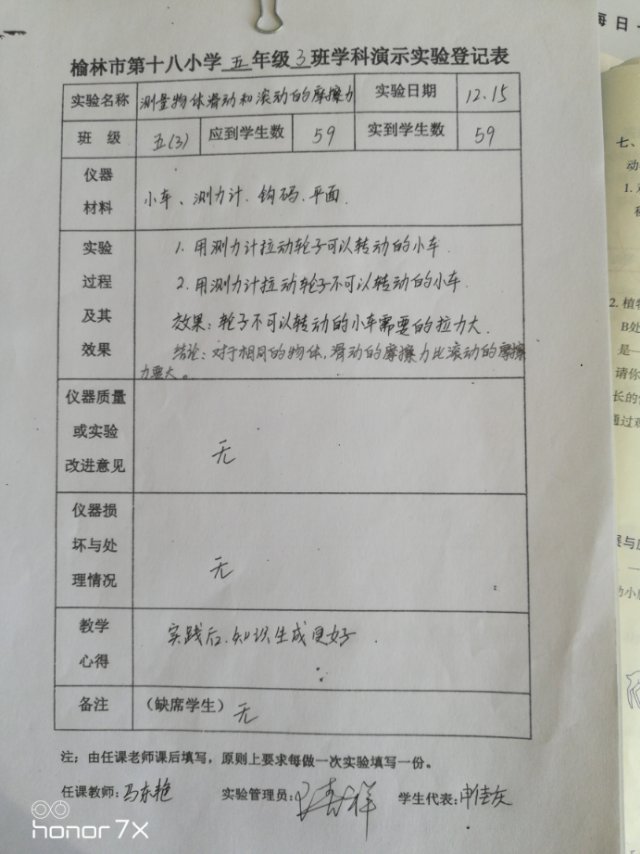 榆林市第十八小学五年级3班学科演示实验登记表
实验名称 测量物体滑动和滚动的摩擦力 实验日期 12.15
班 级 五(3) 应到学生数 59 实到学生数 59
仪器
材料
小车、测力计、钩码、平面.
实验
过程
及其
效果
1. 用测力计拉动轮子可以转动的小车.
2. 用测力计拉动轮子不可以转动的小车.
效果:轮子不可以转动的小车需要的拉力大.
结论:对于相同的物体,滑动的摩擦力比滚动的摩擦
力要大。
仪器质量
或实验
改进意见
无
仪器损
坏与处
理情况
无
教学
心得
实践后,知识生成更好.
备注 (缺席学生) 无
注:由任课老师课后填写,原则上要求每做一次实验填写一份。
任课教师:马东艳 实验管理员: 学生代表:
honor 7X
每日
七、
动
1.
2. 植物
B处
是一
请你
长的
通过观
展与
动小